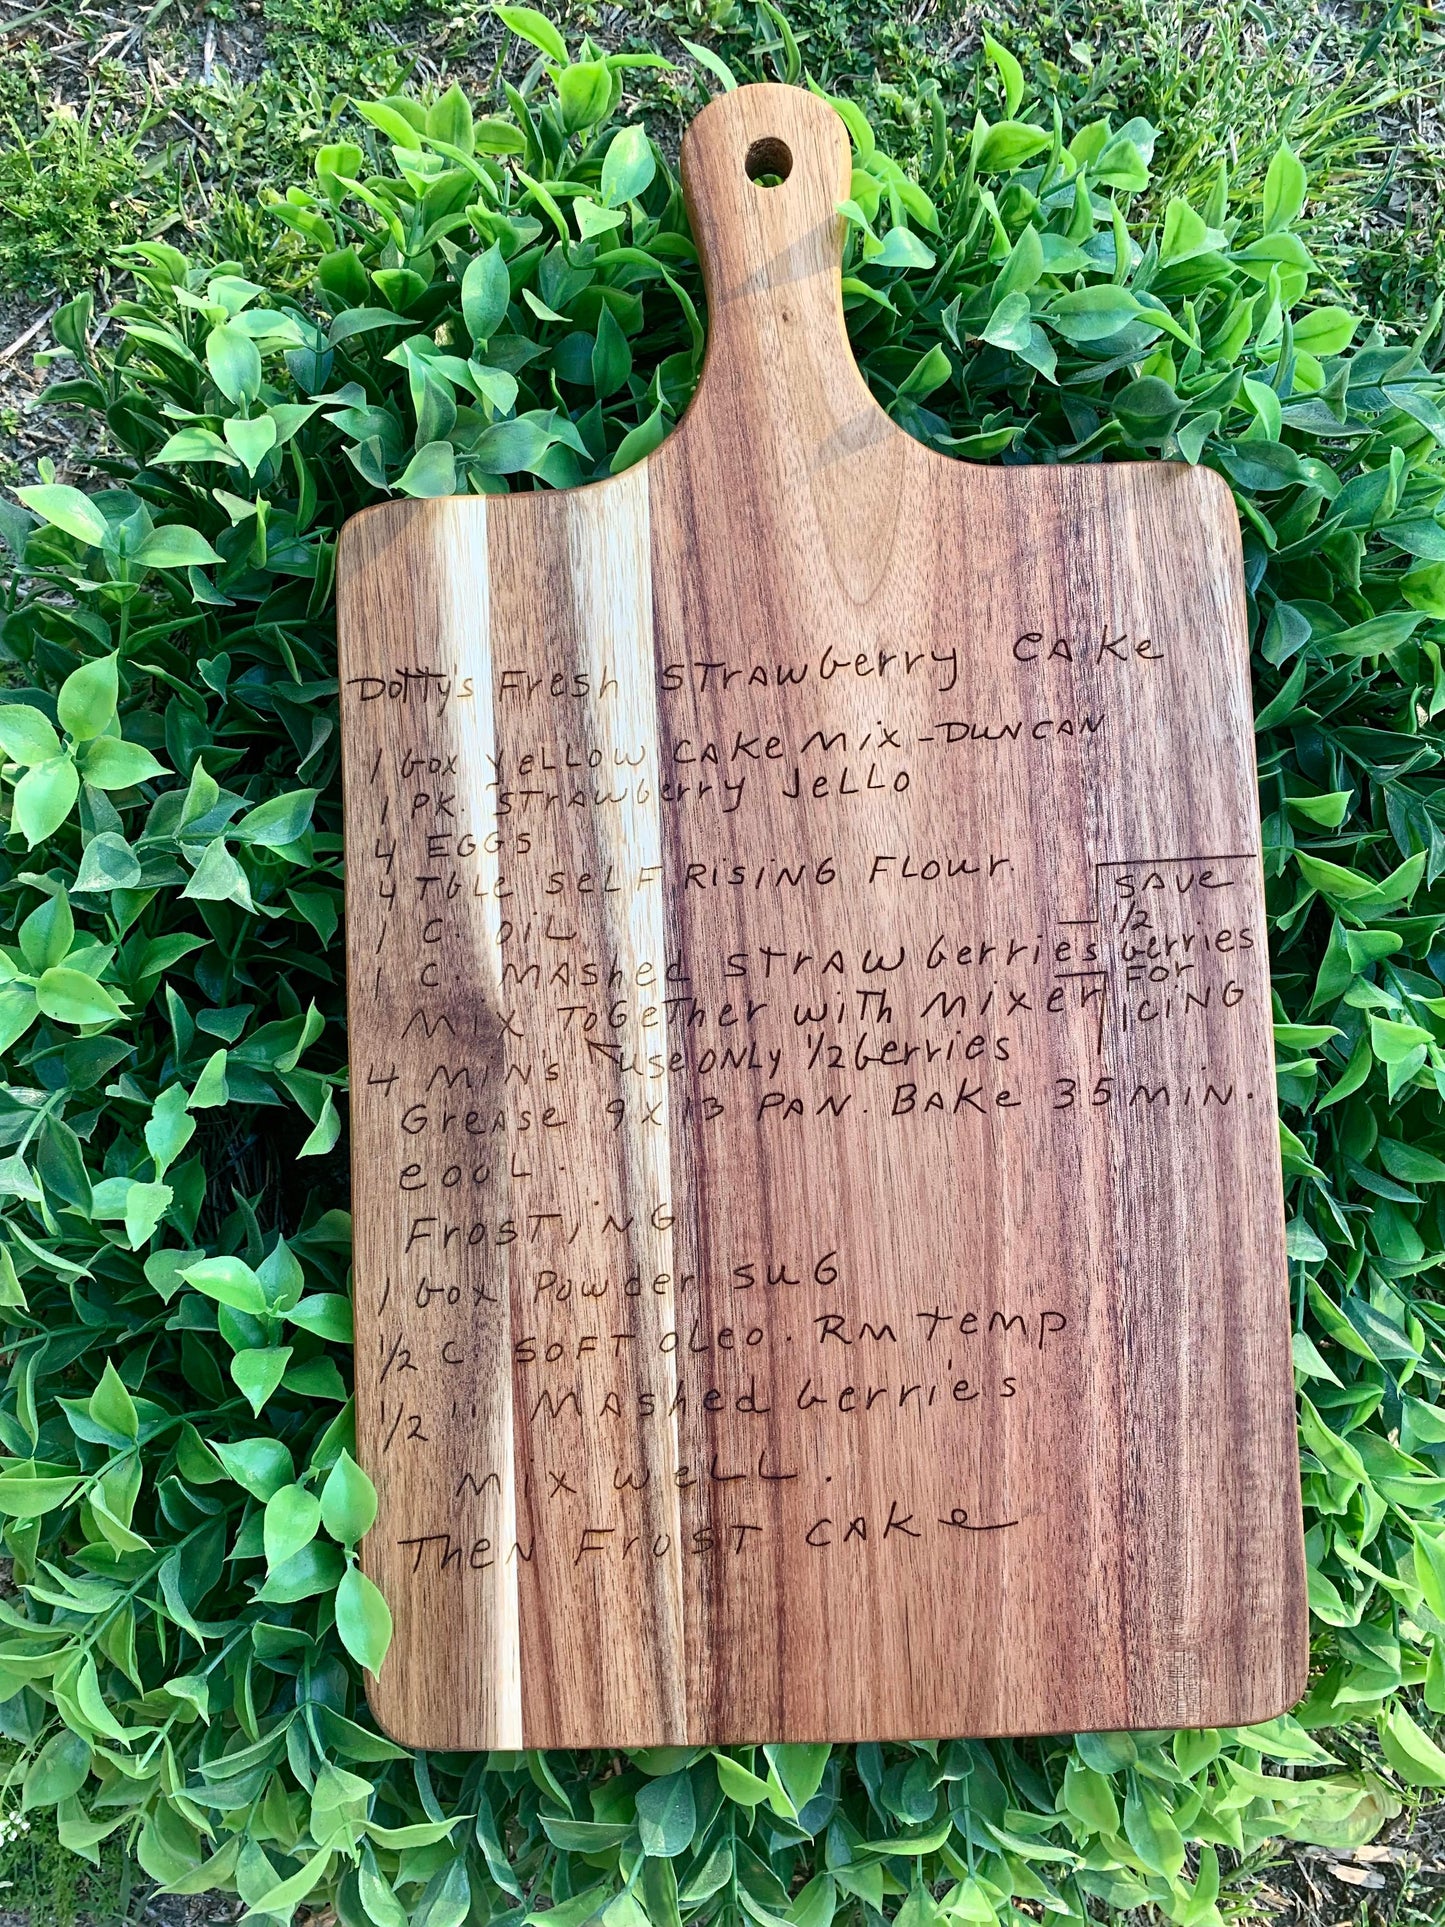 Dotty's Fresh Strawberry Cake
1 box yellow cake mix - Duncan
1 PK. Strawberry Jello
4 EGGS
4 Tble Self Rising Flour.
1 C. oil
1 C. Mashed Strawberries
Save
1/2
berries
For
icing
Mix Together with mixer
4 Min's use only 1/2 berries
Grease 9 x 13 PAN. Bake 35 min.
Cool.
Frosting
1 box Powder Sug
1/2 C. Soft oleo. Rm temp
1/2 " Mashed berrie's
Mix well.
Then Frost Cake